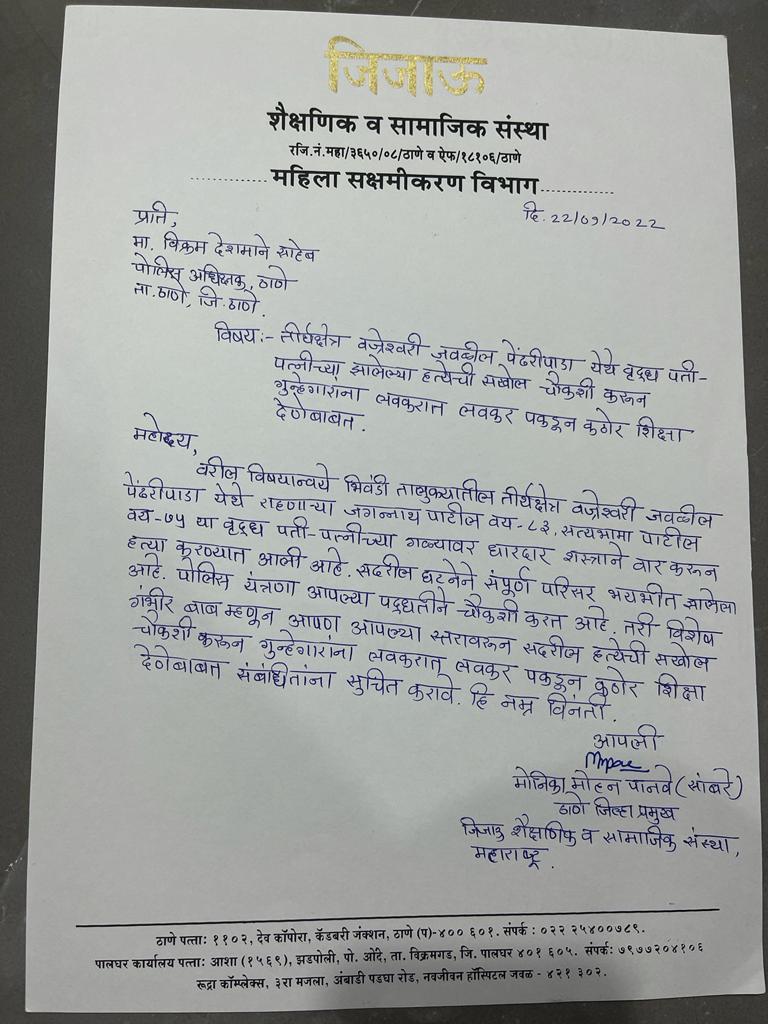 जिजाऊ
शैक्षणिक व सामाजिक संस्था
रजि.नं.महा/३६५०/०८/ठाणे व ऐफ/१८१०६/ठाणे
महिला सक्षमीकरण विभाग
दि. 22/09/2022
प्रति,
मा. विक्रम देशमाने साहेब
पोलिस अधिक्षक, ठाणे
ता.ठाणे, जि.ठाणे.
विषय:- तीर्थक्षेत्र वज्रेश्वरी जवळील पेंढरीपाडा येथे वृद्ध पती-
पत्नीच्या झालेल्या हत्येची सखोल चौकशी करून
गुन्हेगारांना लवकरात लवकर पकडून कठोर शिक्षा
देणेबाबत.
महोदय,
वरील विषयान्वये भिवंडी तालुक्यातील तीर्थक्षेत्र वज्रेश्वरी जवळील
पेंढरीपाडा येथे राहणाऱ्या जगन्नाथ पाटील वय-८३, सत्यभामा पाटील
वय-७५ या वृद्ध पती-पत्नीच्या गळ्यावर धारदार शस्त्राने वार करून
हत्या करण्यात आली आहे. सदरील घटनेने संपूर्ण परिसर भयभीत झालेला
आहे. पोलिस यंत्रणा आपल्या पद्धतीने चौकशी करत आहे. तरी विशेष
गंभीर बाब म्हणून आपण आपल्या स्तरावरून सदरील हत्येची सखोल
चौकशी करून गुन्हेगारांना लवकरात लवकर पकडून कठोर शिक्षा
देणेबाबत संबंधितांना सुचित करावे. हि नम्र विनंती.
आपली
मोनिका मोहन पानवे (सांबरे)
ठाणे जिल्हा प्रमुख
जिजाऊ शैक्षणिक व सामाजिक संस्था,
महाराष्ट्र.
ठाणे पत्ता: ११०२, देव कॉर्पोरा, कॅडबरी जंक्शन, ठाणे (प)-४०० ६०१. संपर्क : ०२२ २५४००७८९.
पालघर कार्यालय पत्ता: आशा (१५६९), झडपोली, पो. ओंदे, ता. विक्रमगड, जि. पालघर ४०१ ६०५. संपर्क: ७९७७२०४१०६
रूद्रा कॉम्प्लेक्स, ३रा मजला, अंबाडी पडघा रोड, नवजीवन हॉस्पिटल जवळ - ४२१ ३०२.